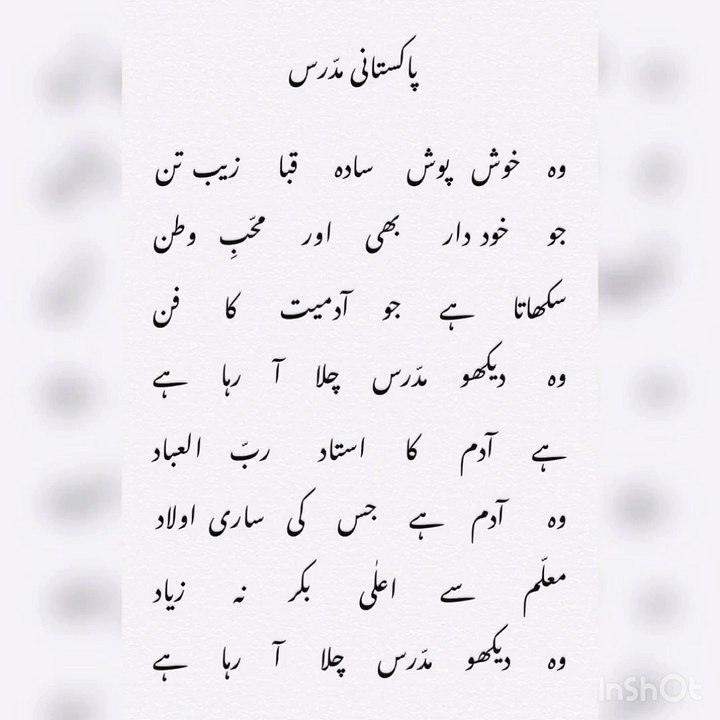 پاکستانی مدّرس
وہ خوش پوش سادہ قبا زیب تن
جو خود دار بھی اور محبِّ وطن
سکھاتا ہے جو آدمیت کا فن
وہ دیکھو مدّرس چلا آ رہا ہے
ہے آدم کا استاد ربّ العباد
وہ آدم ہے جس کی ساری اولاد
معلّم سے اعلٰی بکر نہ زیاد
وہ دیکھو مدّرس چلا آ رہا ہے
InShOt